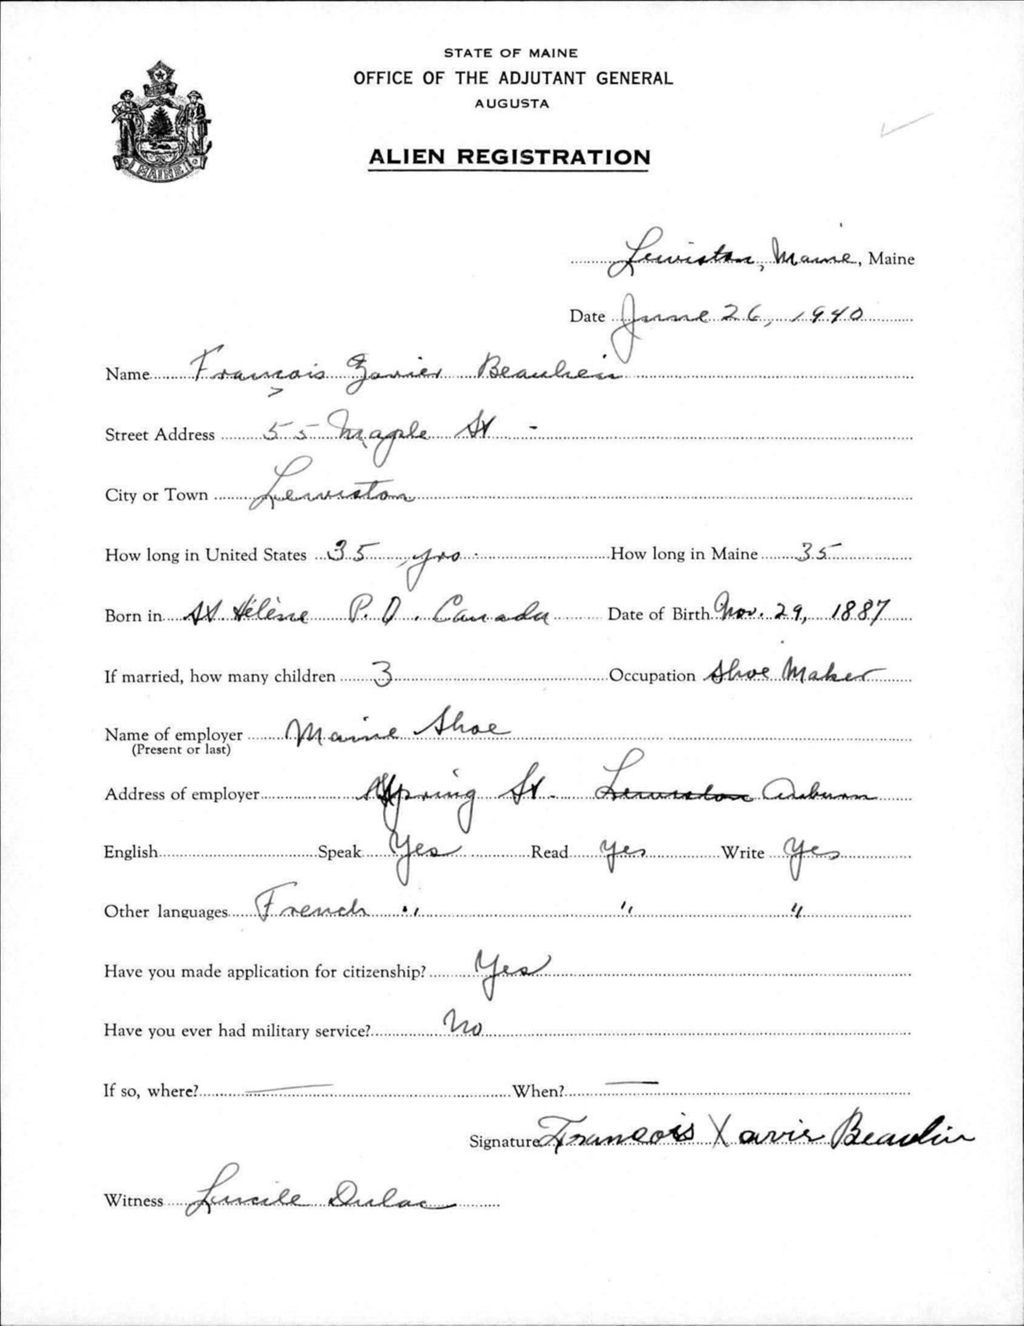 STATE OF MAINE
OFFICE OF THE ADJUTANT GENERAL
AUGUSTA
MAINE
ALIEN REGISTRATION
Lewiston, Maine, Maine
Date June 26, 1940
Name Francois Zavier Beaulieu
Street Address 55 Maple St -
City or Town Lewiston
How long in United States 35 yrs. How long in Maine 35
Born in St Hélène P. Q. Canada Date of Birth Nov. 29, 1887
If married, how many children 3 Occupation Shoe Maker
Name of employer Maine Shoe
(Present or last)
Address of employer Spring St. Lewiston Auburn
English Speak Yes Read Yes Write Yes
Other languages French " " "
Have you made application for citizenship? Yes
Have you ever had military service? No
If so, where? — When? —
Signature Francois Xavier Beaulieu
Witness Lucile Dulac